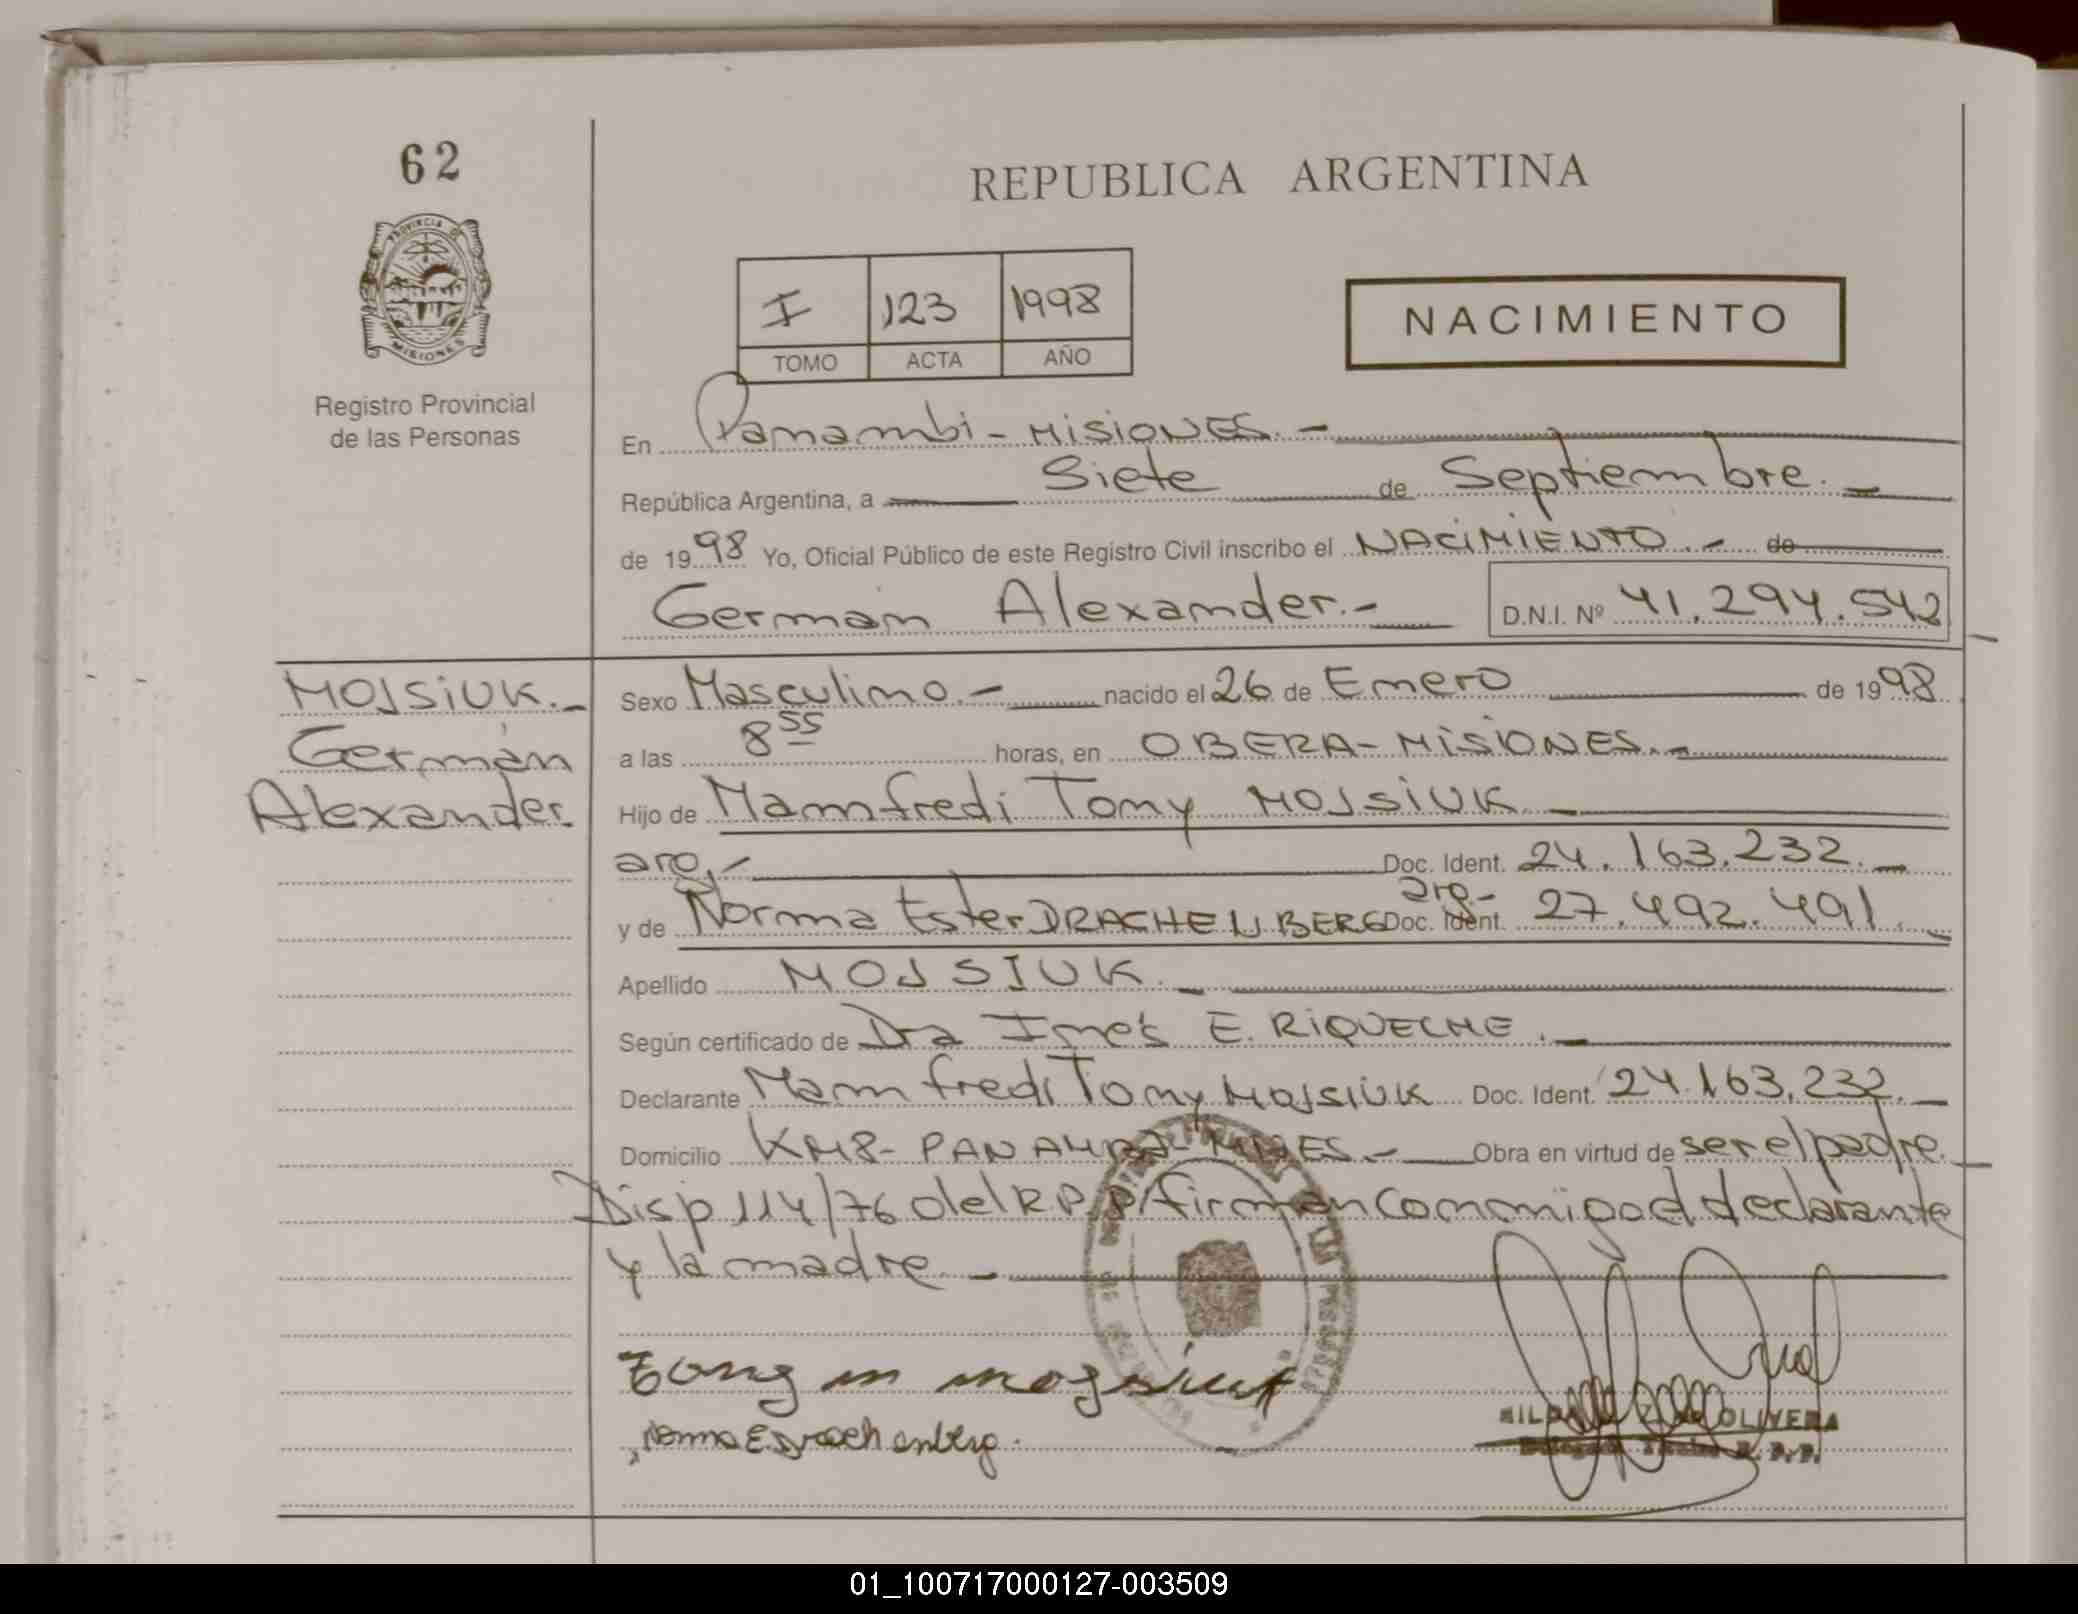 62
PROVINCIA DE
MISIONES
Registro Provincial
de las Personas
REPUBLICA ARGENTINA
I 123 1998
TOMO ACTA AÑO
NACIMIENTO
En Panambi - MISIONES.-
República Argentina, a Siete de Septiembre.-
de 1998 Yo, Oficial Público de este Registro Civil inscribo el NACIMIENTO.- de
Germán Alexander.- D.N.I. Nº 41.294.542
MOJSIUK.-
Germán
Alexander.
Sexo Masculino.- nacido el 26 de Enero de 1998.
a las 8 55 horas, en OBERA - MISIONES.-
Hijo de Manfredi Tony MOJSIUK -
arg.- Doc. Ident. 24.163.232.-
y de Norma Ester DRACHENBERG arg.- Doc. Ident. 27.492.491.-
Apellido MOJSIUK.-
Según certificado de Dra Inés E. RIQUECHE.-
Declarante Manfredi Tony MOJSIUK Doc. Ident. 24.163.232.-
Domicilio KM8 - PANAMBI - MNES.- Obra en virtud de ser el padre.-
Disp 114/76 del R.P.P/firman conmigo el declarante
y la madre.-
Tony m mogsiuk
Norma E Drachenberg.
OLIVERA
R.P.P.
01_100717000127-003509